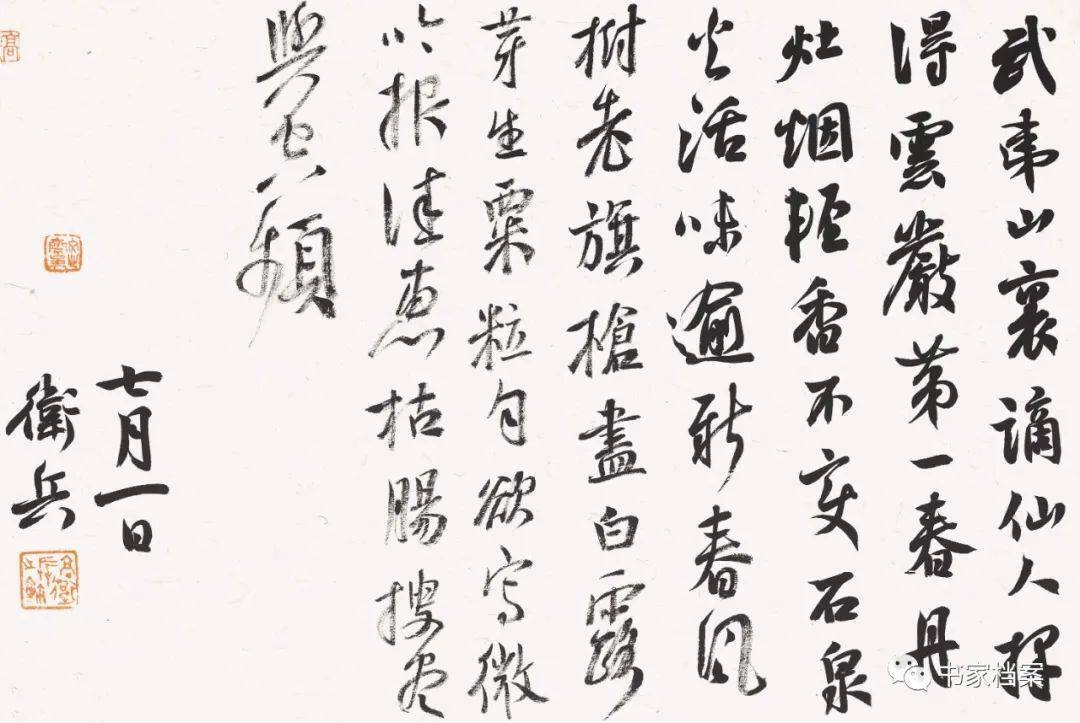 武夷山裏謫仙人採
得雲巖第一春丹
灶烟輕香不变石泉
火活味逾新春風
樹老旗槍盡白露
芽生粟粒匀欲写微
吟报佳惠枯腸搜尽
興空頻
七月一日
衛兵
高
书家档案